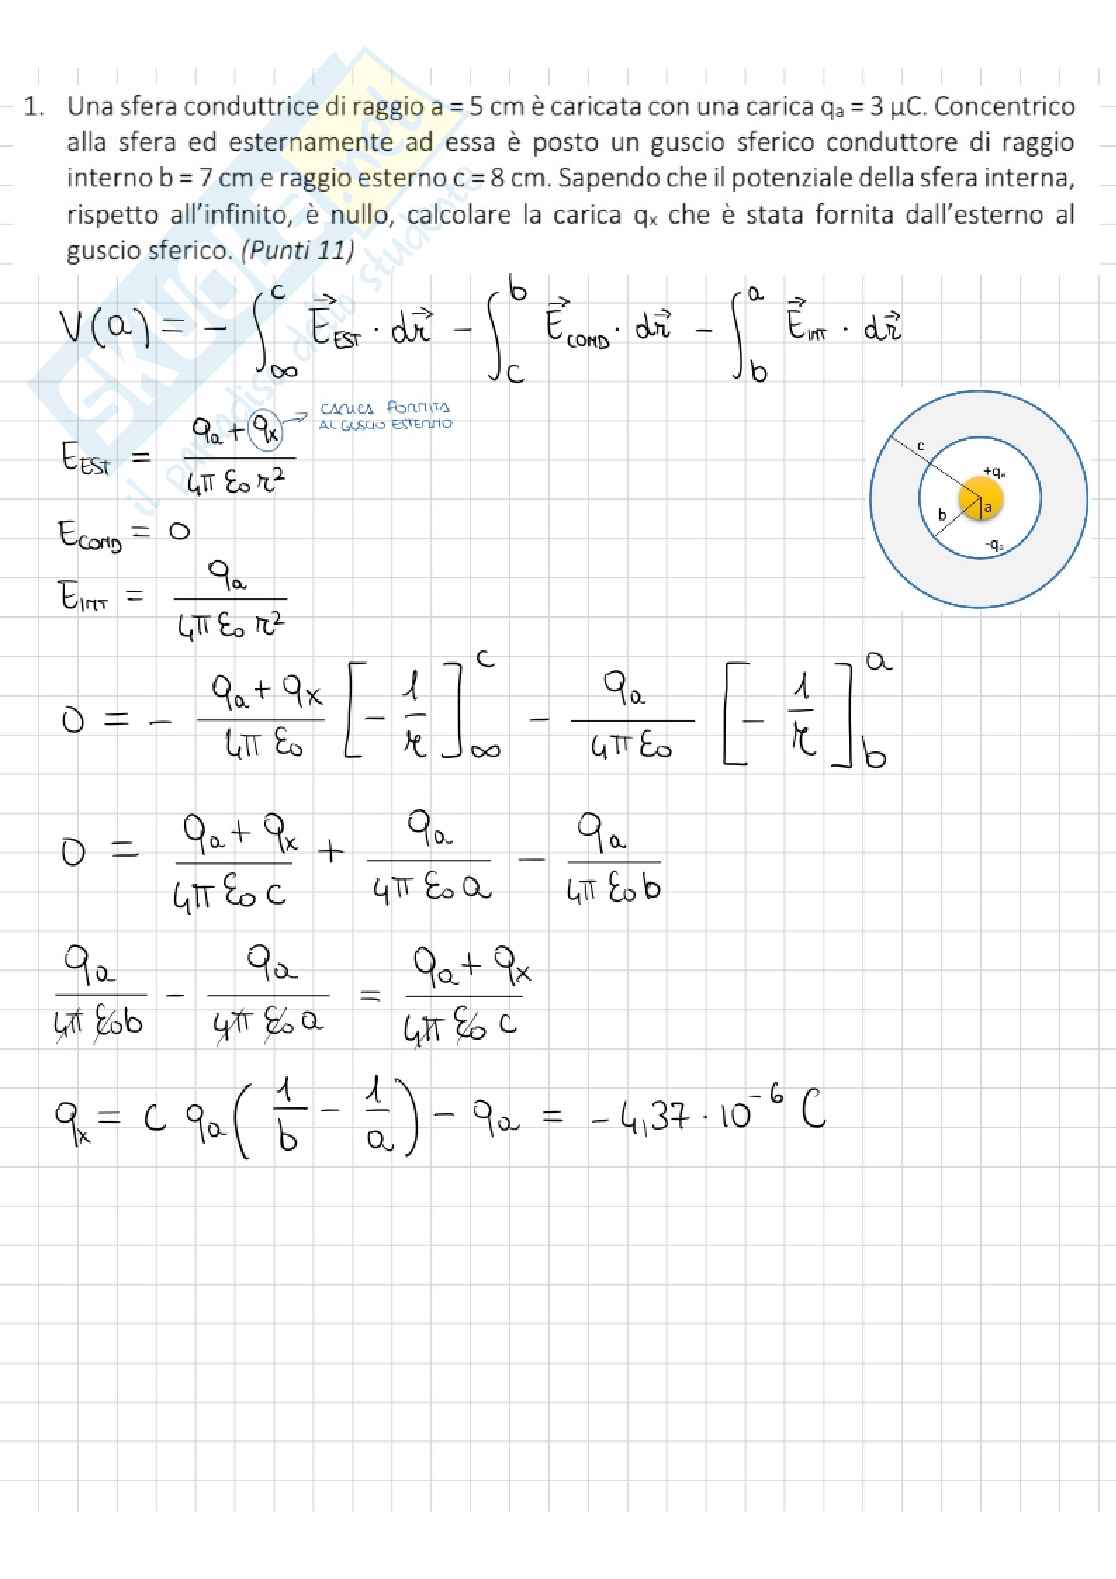 1. Una sfera conduttrice di raggio a = 5 cm è caricata con una carica qₐ = 3 μC. Concentrico
alla sfera ed esternamente ad essa è posto un guscio sferico conduttore di raggio
interno b = 7 cm e raggio esterno c = 8 cm. Sapendo che il potenziale della sfera interna,
rispetto all'infinito, è nullo, calcolare la carica qₓ che è stata fornita dall'esterno al
guscio sferico. (Punti 11)
V(a) = - ∫_∞^c E⃗_EST · dr⃗ - ∫_c^b E⃗_COND · dr⃗ - ∫_b^a E⃗_INT · dr⃗
E_EST = (qₐ + qₓ) / (4π ε₀ r²) → CARICA FORNITA
AL GUSCIO ESTERNO
E_COND = 0
E_INT = qₐ / (4π ε₀ r²)
c
+qₐ
b
a
-qₐ
0 = - (qₐ + qₓ) / (4π ε₀) [- 1/r]_∞^c - qₐ / (4π ε₀) [- 1/r]_b^a
0 = (qₐ + qₓ) / (4π ε₀ c) + qₐ / (4π ε₀ a) - qₐ / (4π ε₀ b)
qₐ / (4π ε₀ b) - qₐ / (4π ε₀ a) = (qₐ + qₓ) / (4π ε₀ c)
qₓ = c qₐ (1/b - 1/a) - qₐ = - 4,37 · 10⁻⁶ C
SKUOLA.net
il paradiso dello studente